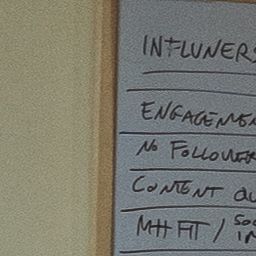 INFLUNERS
ENGAGEMEN
No FOLLOWER
CONTENT QU
FIT / SOC
IM